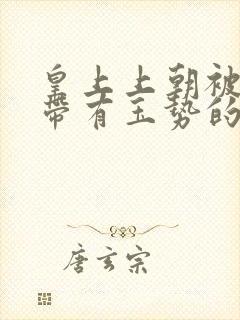 皇上上朝被
带有玉势的
唐玄宗